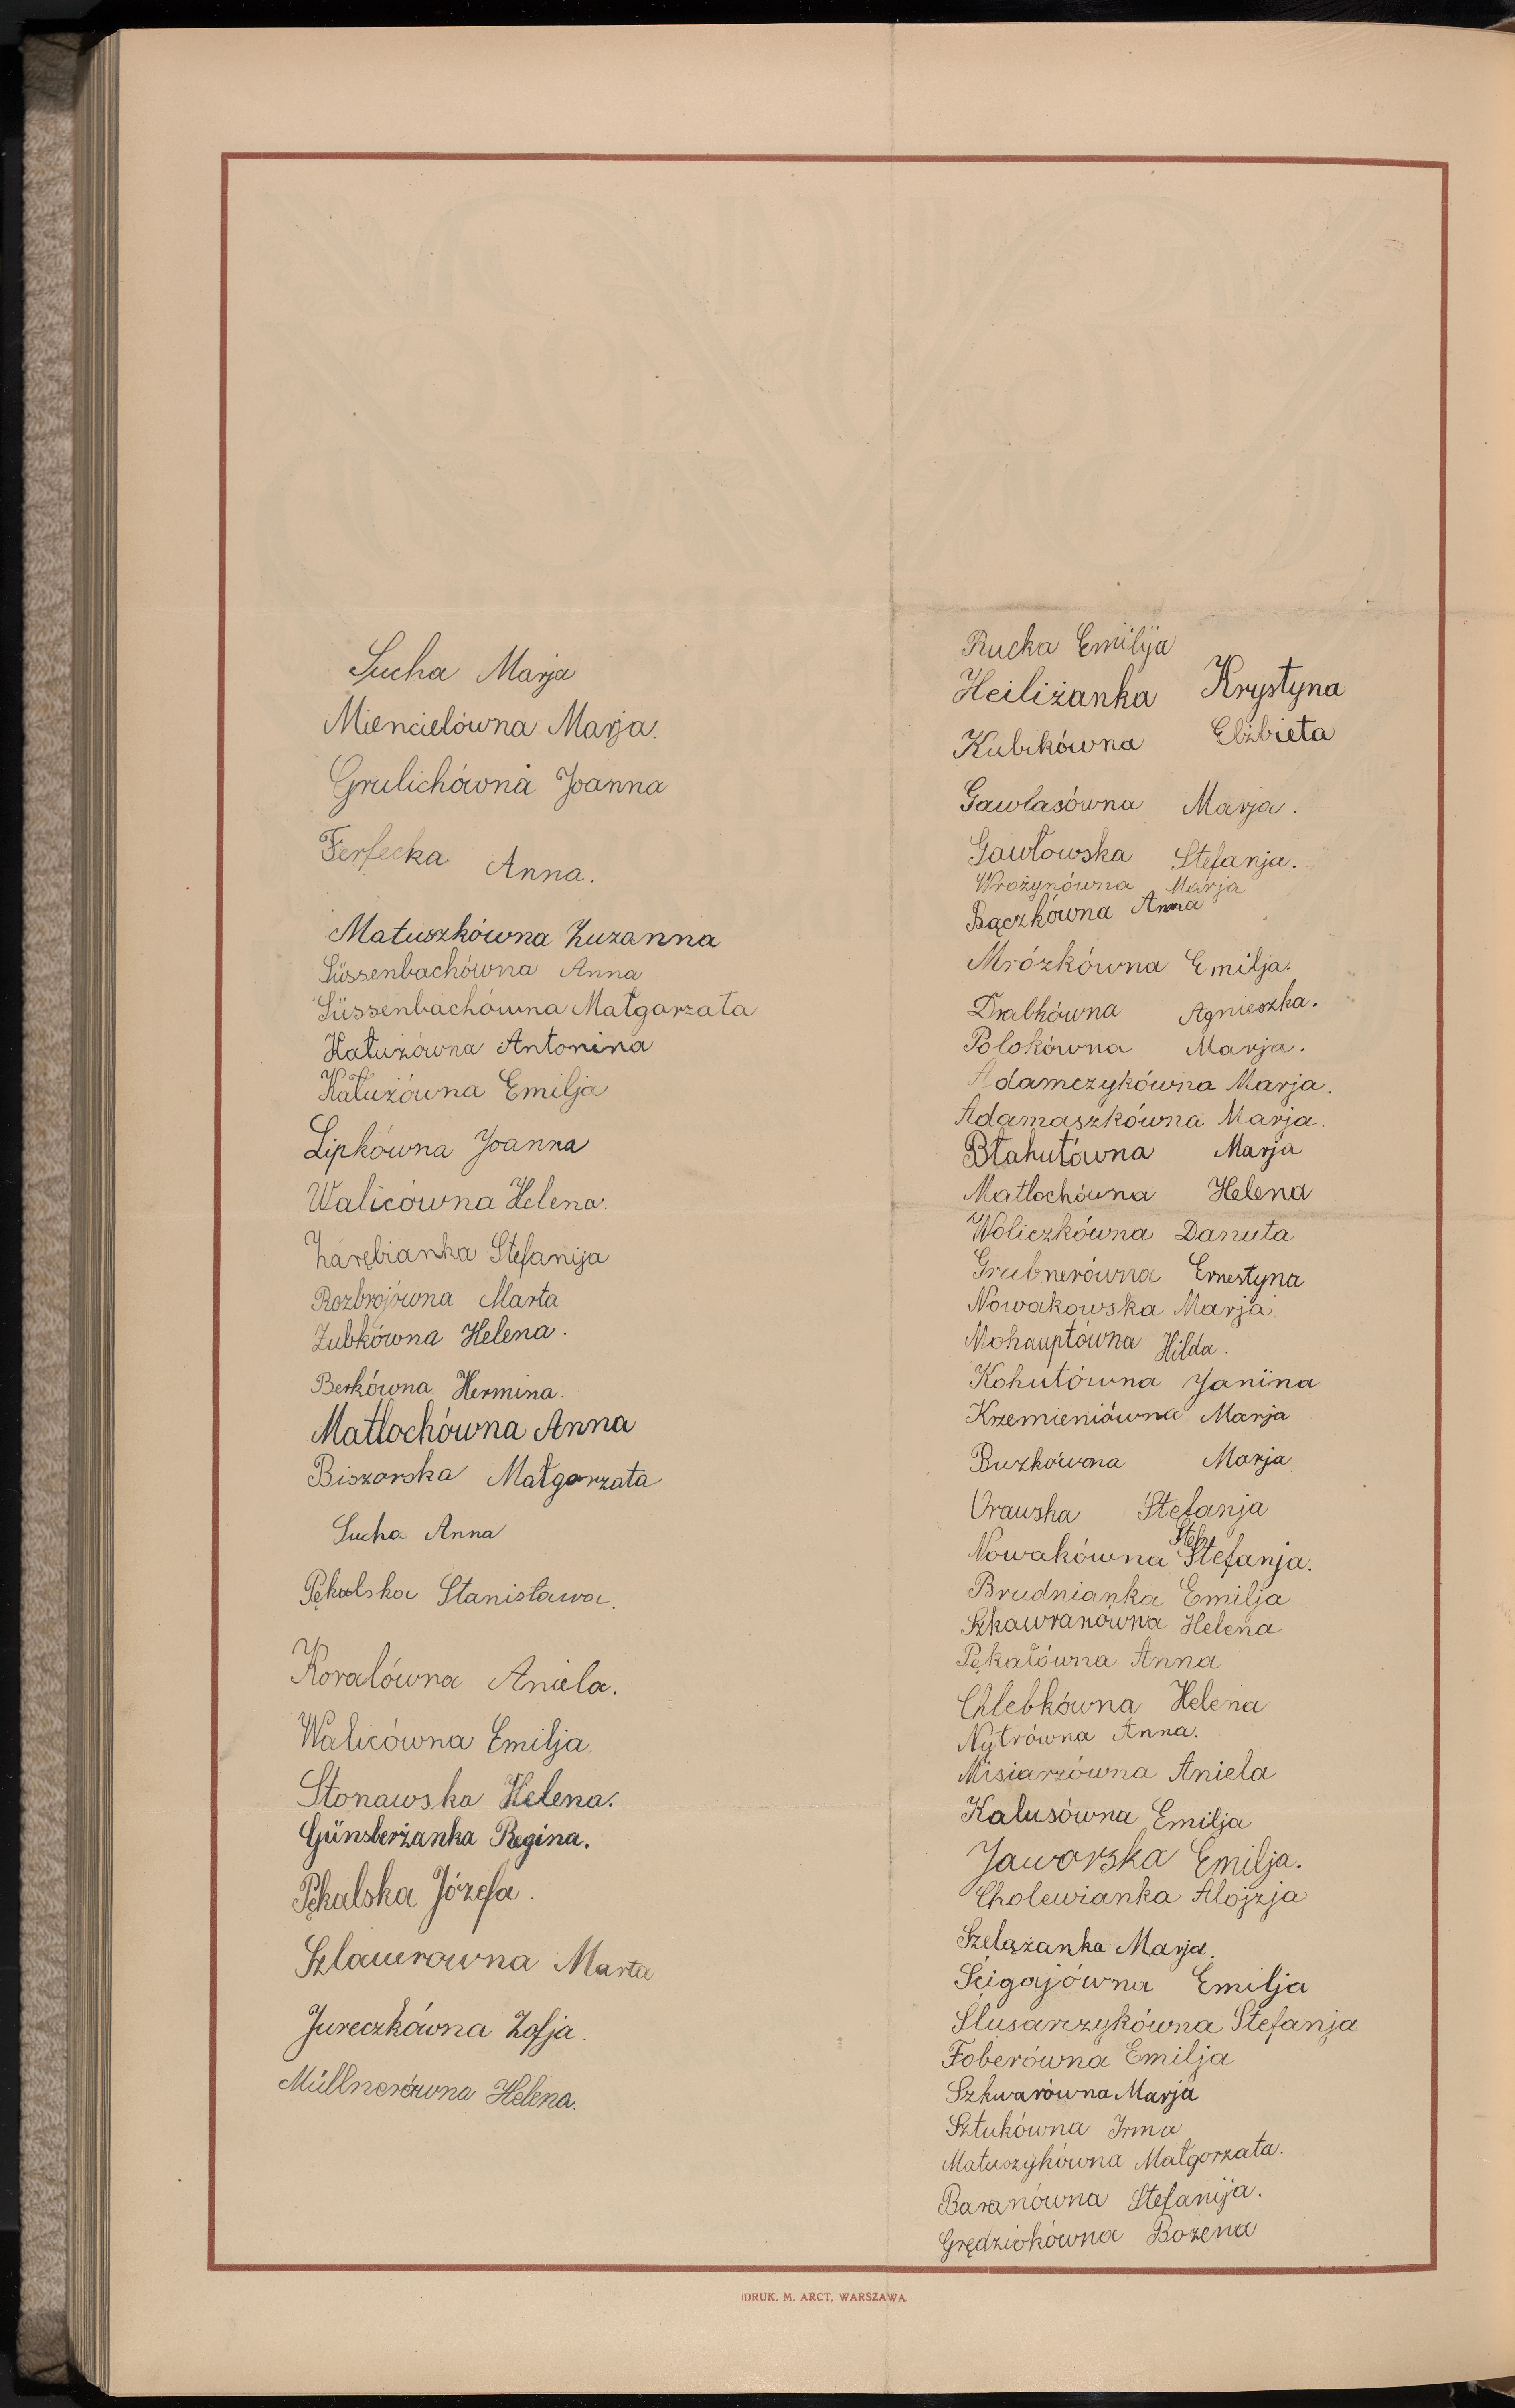 Sucha Marja
Miencielówna Marja.
Grulichówna Joanna
Ferfecka Anna.
Matuszkówna Zuzanna
Süssenbachówna Anna
Süssenbachówna Małgarzata
Kałużówna Antonina
Kałużówna Emilja
Lipkówna Joanna
Walicówna Helena.
Zarębianka Stefanija
Rozbrojówna Marta
Zubkówna Helena.
Berkówna Hermina.
Matlochówna Anna
Biszorska Małgorzata
Sucha Anna
Pękalska Stanisława.
Koralówna Aniela.
Walicówna Emilja.
Stonawska Helena.
Günsberżanka Regina.
Pękalska Józefa.
Szlauerowna Marta
Jureczkówna Zofja.
Müllnerówna Helena.
Rucka Emilija
Heiliżanka Krystyna
Kubikówna Elżbieta
Gawlasówna Marja.
Gawłowska Stefanja.
Wrożynówna Marja
Bączkówna Anna
Mrózkówna Emilja.
Drabkówna Agnieszka.
Polokówna Marja.
Adamczykówna Marja.
Adamaszkówna Marja.
Błahutówna Marja
Matlochówna Helena
Woliczkówna Danuta
Grubnerówna Ernestyna
Nowakowska Marja
Mohauptówna Hilda.
Kohutówna Janina
Krzemieniówna Marja
Buzkówna Marja
Urauska Stefanja
Stefa
Nowakówna Stefanja.
Brudnianka Emilja
Szkawranówna Helena
Pękałówna Anna
Chlebkówna Helena
Nytrówna Anna.
Misiarzówna Aniela
Kalusówna Emilja
Jaworska Emilja.
Cholewianka Alojzja
Szelążanka Marja.
Ścigajówna Emilja
Ślusarczykówna Stefanja
Foberówna Emilja
Szkwarówna Marja
Sztukówna Irma
Matuszykówna Małgorzata.
Baranówna Stefanija.
Grędziokówna Bożena
DRUK. M. ARCT, WARSZAWA.